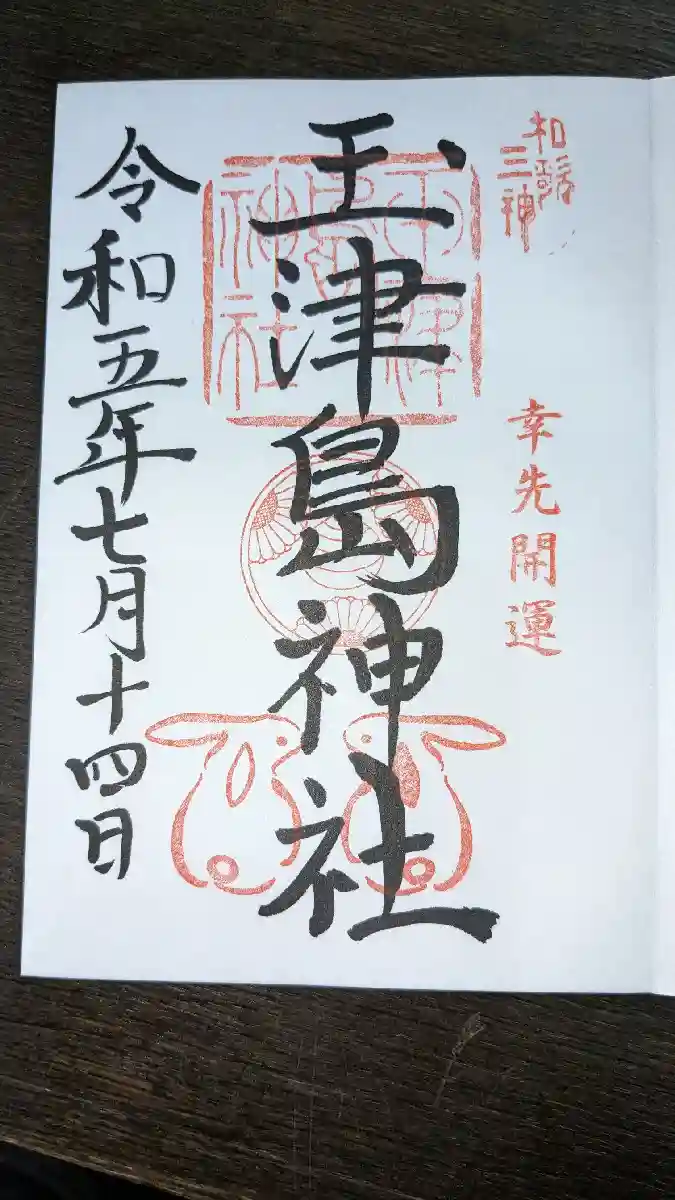 和歌
三神
幸先開運
玉津島神社
玉津島神社
令和五年七月十四日